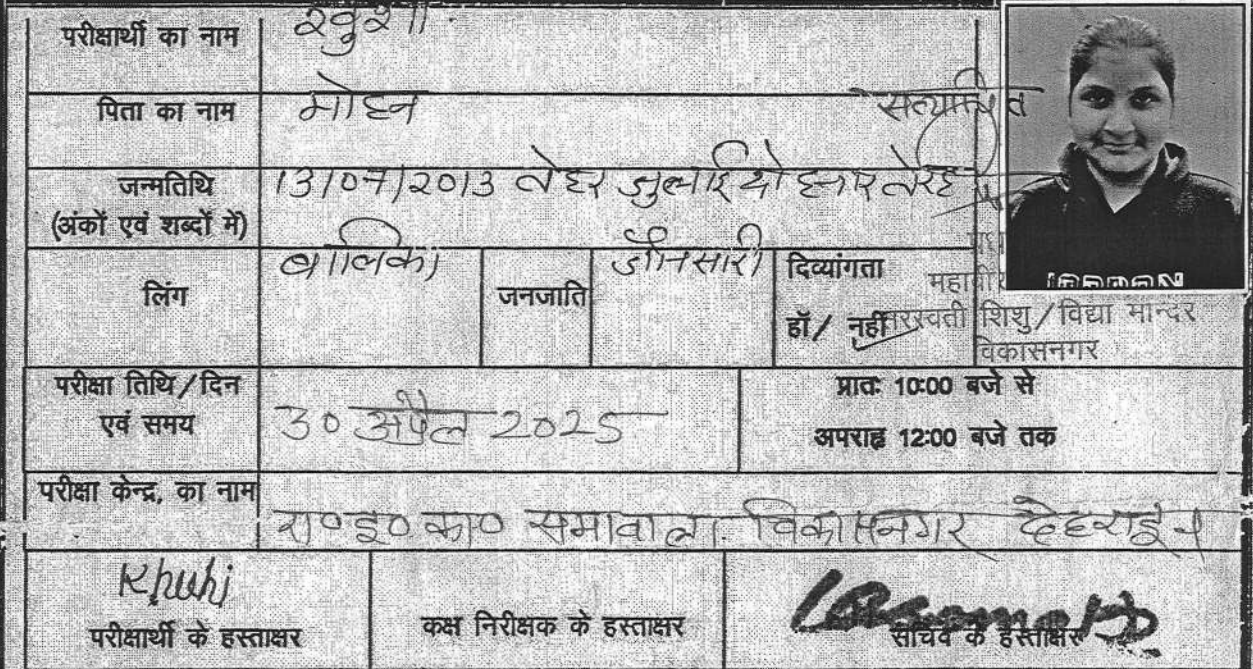 परीक्षार्थी का नाम खुशी
पिता का नाम मोहन
सत्यापित
जन्मतिथि 13/07/2013 तेहर जुलाई दो हजार तेरह
(अंकों एवं शब्दों में)
लिंग बालिका जनजाति जौनसारी दिव्यांगता
हॉ / नहीं
महावीर
सरस्वती शिशु / विद्या मन्दिर
विकासनगर
परीक्षा तिथि / दिन
एवं समय
30 अप्रैल 2025
प्रातः 10:00 बजे से
अपराह्न 12:00 बजे तक
परीक्षा केन्द्र, का नाम
रा० इ० का० सभावाला विकासनगर देहरादून
Khuhi
परीक्षार्थी के हस्ताक्षर
कक्ष निरीक्षक के हस्ताक्षर
सचिव के हस्ताक्षर